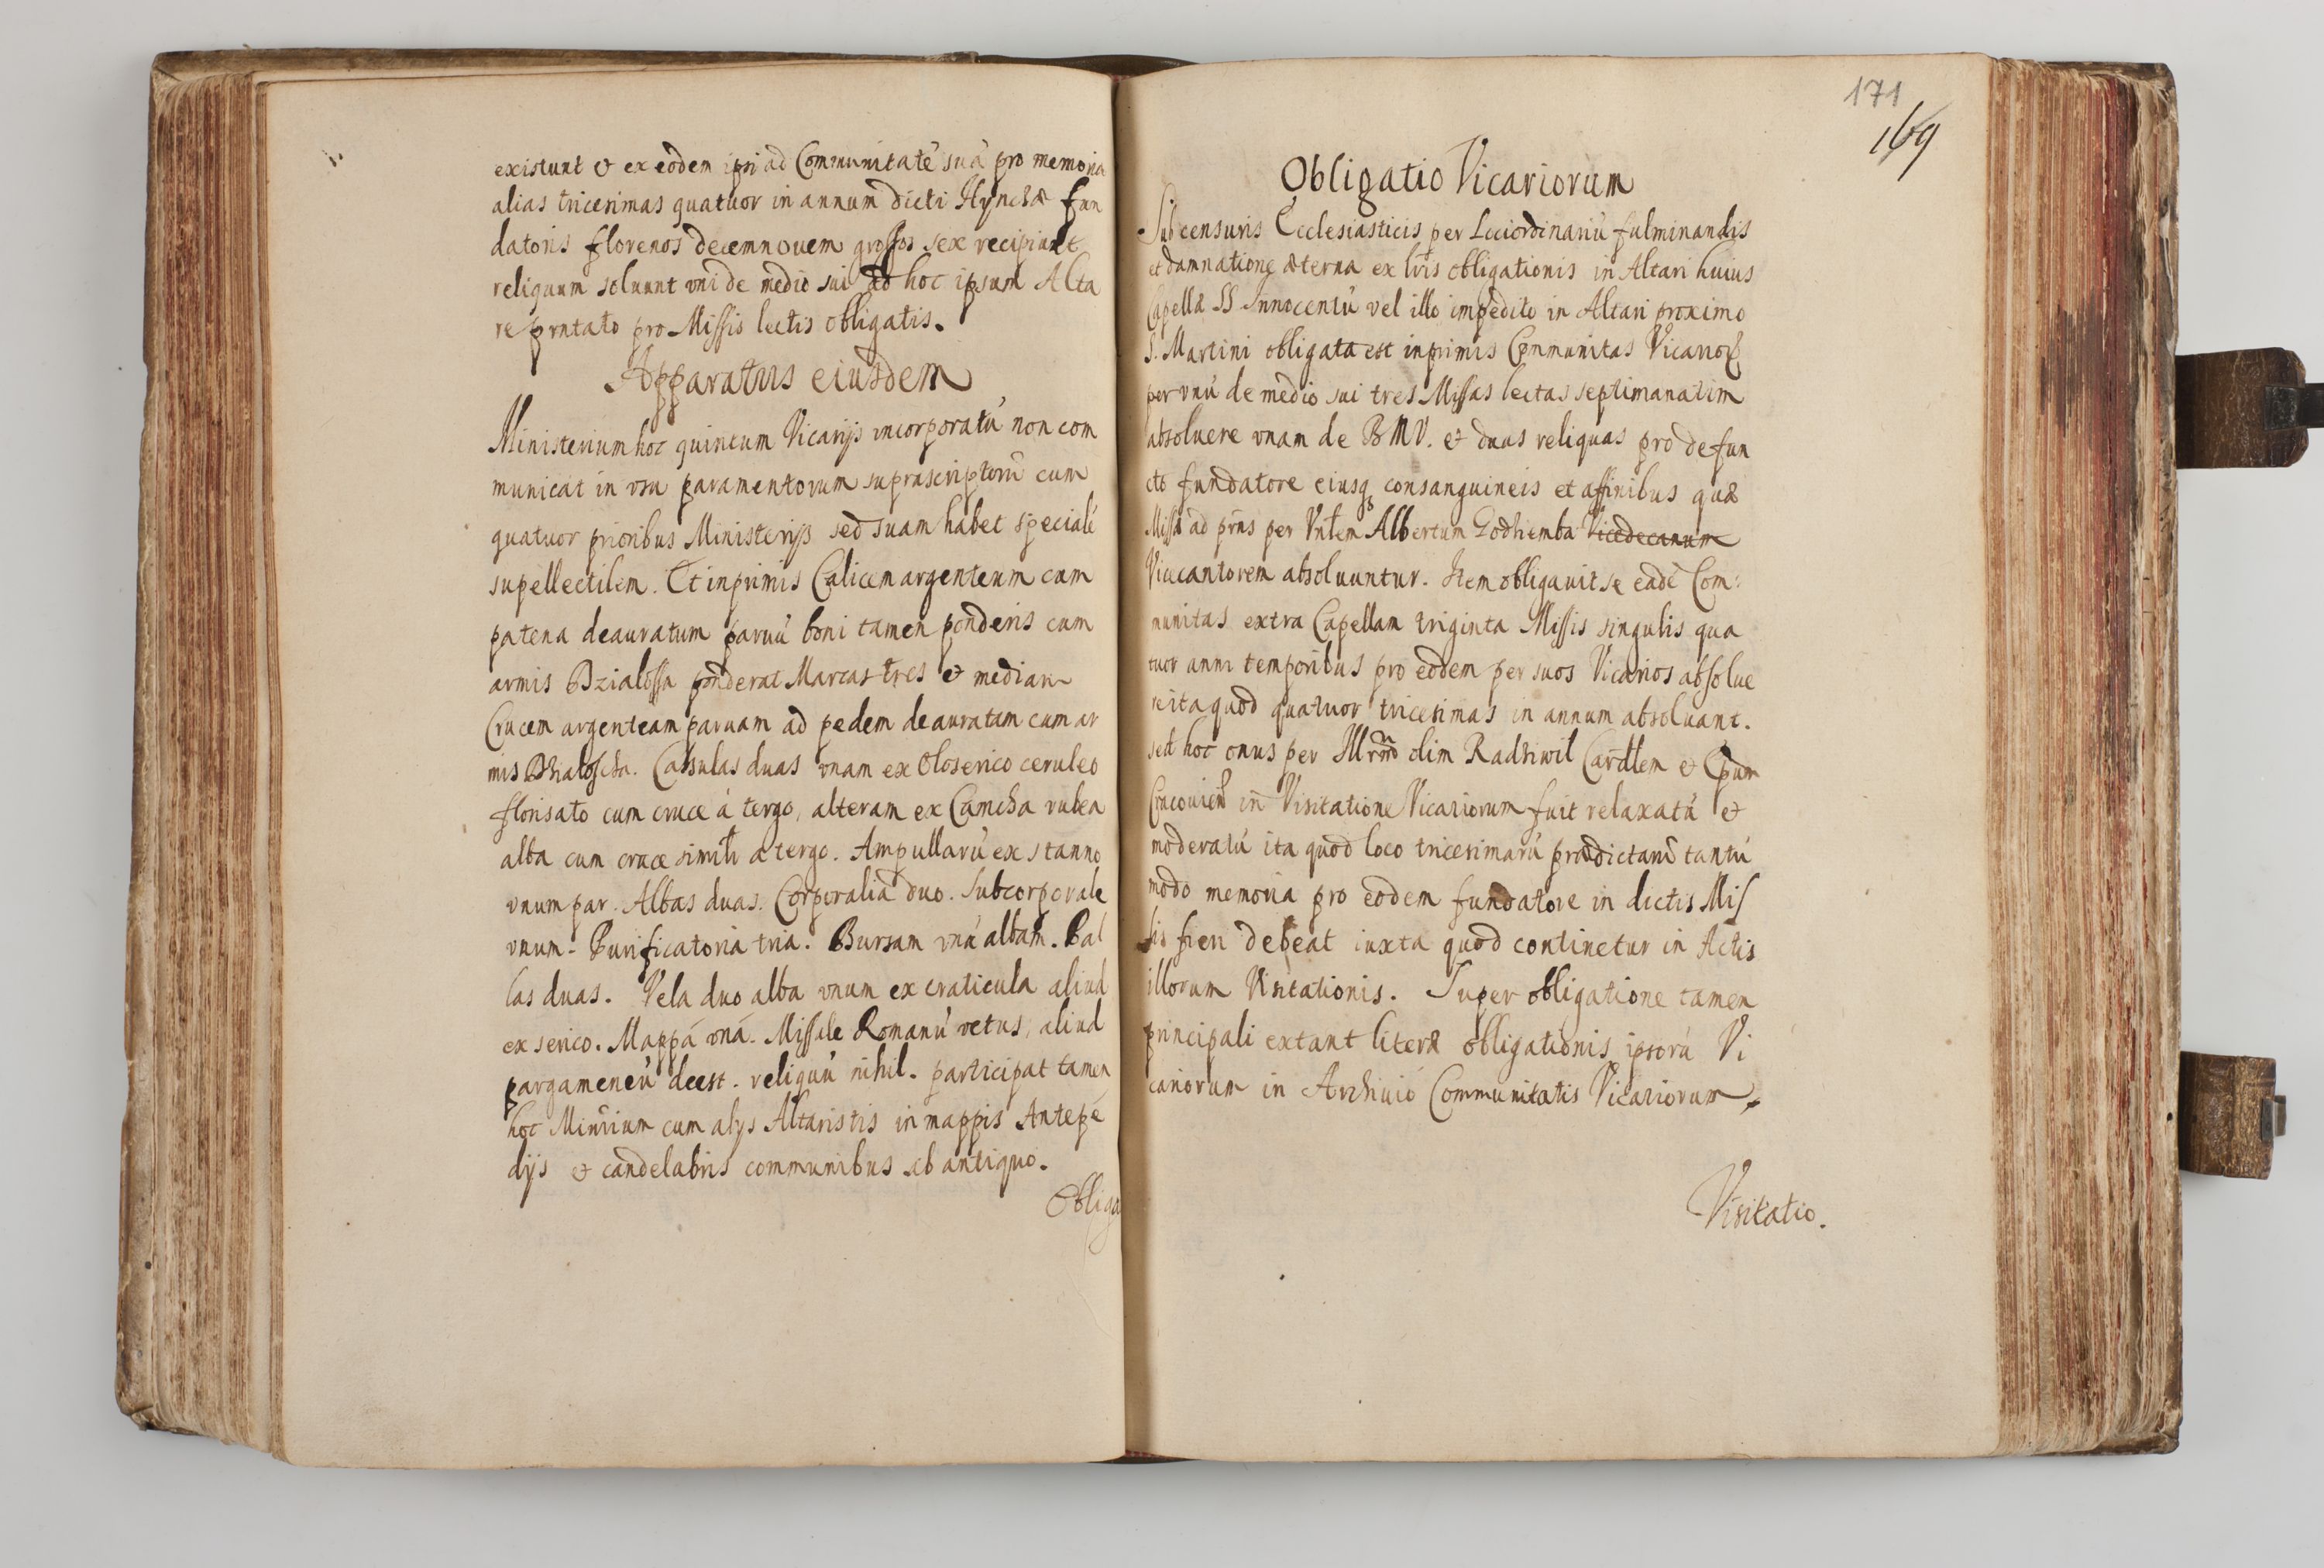 existunt & ex eodem ipsi ad Communitatē suā pro memoria
alias tricesimas quatuor in annum dicti Hynckæ fun
datoris florenos decemnouem grossos sex recipiunt
reliquum soluunt vni de medio sui ad hoc ipsum Alta
re prntato pro Missis lectis obligatis.
Apparatus eiusdem
Ministerium hoc quintum Vicarijs incorporatū non com
municat in vsu paramentorum suprascriptorū cum
quatuor prioribus Ministerijs sed suam habet specialē
supellectilem. Et inprimis Calicem argenteum cum
patena deauratum paruū boni tamen ponderis cum
armis Bzialossa ponderat Marcas tres & mediam
Crucem argenteam paruam ad pedem deauratam cum ar
mis Bhaloscha. Casulas duas vnam ex Oloserico ceruleo
florisato cum cruce à tergo, alteram ex Camcha rubea
alba cum cruce simili a tergo. Ampullarū ex stanno
vnum par. Albas duas. Corporalia duo. Subcorporale
vnum. Purificatoria tria. Bursam vnā albam. Pal
las duas. Vela duo alba vnum ex craticula aliud
ex serico. Mappā vnā. Missale Romanū vetus, aliud
pargameneū deest. reliquū nihil. participat tamen
hoc Minrium cum alijs Altaristis in mappis Antepē
dijs & candelabris communibus ab antiquo.
Obliga
171
169
Obligatio Vicariorum
Sub censuris Ecclesiasticis per Lociordinariū fulminandis
et damnatione æterna ex lris obligationis in Altari huius
Capellæ SS Innocentū vel illo impedito in Altari proximo
S. Martini obligata est inprimis Communitas Vicarior
per vnū de medio sui tres Missas lectas septimanatim
absoluere vnam de BMV. & duas reliquas pro defun
cto fundatore eiusq consanguineis et affinibus quæ
Missæ ad prns per Vnlem Albertum Godziemba Vicedecanum
Vicecantorem absoluuntur. Item obligauit se eadē Com:
munitas extra Capellam triginta Missis singulis qua
tuor anni temporibus pro eodem per suos Vicarios absolue
re ita quod quatuor tricesimas in annum absoluant.
sed hoc onus per Illrmū olim Radziwil Cardlem & Epum
Cracouien in Visitatione Vicariorum fuit relaxatū &
moderatū ita quod loco tricesimarū prædictarū tantū
modo memoria pro eodem fundatore in dictis Mis
sis fieri debeat iuxta quod continetur in Actis
illorum Visitationis. Super obligatione tamen
principali extant literæ obligationis ipsorū Vi
cariorum in Archiuio Communitatis Vicariorum.
Visitatio.